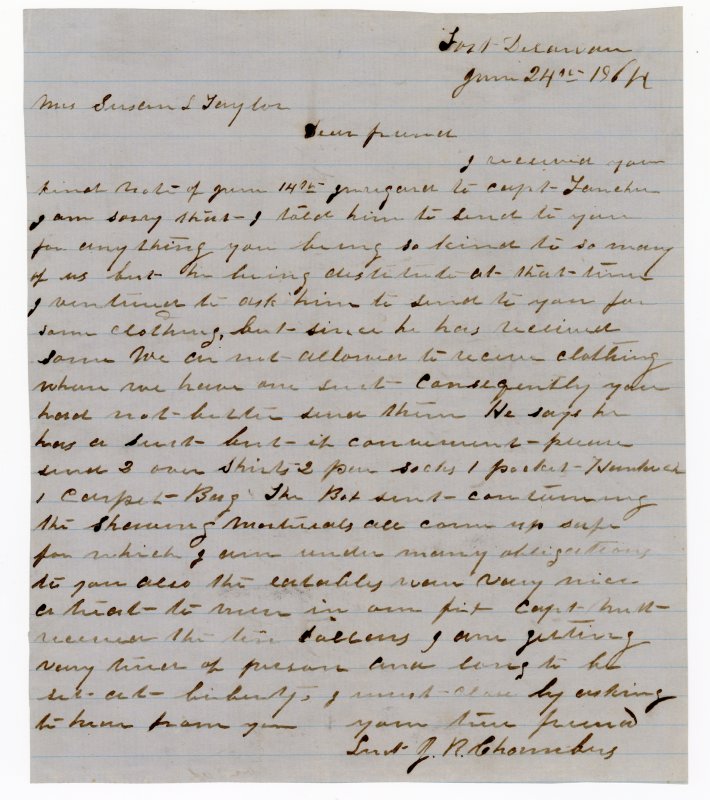 Fort Delawau
June 24th 1864
Mrs Susan S Taylor
Dear friend
I received your
kind note of June 14th inregard to capt
I am sorry that I told him to send to you
for any thing you being so kind to so many
of us but he being distitute at that time
I ventured to ask him to send to you for
some clothing, but since he has received
some We are not allowed to receive clothing
when we have one suit Conseqently you
had not better send them He says he
has a suit but if convenient please
send 2 over Shirts 2 pair socks 1 pocket
1 Carpet Bag The Box sent containing
the Shaving Matterials all come up safe
for which I am under many obligations
to you also the eatables ware very nice
a treat to men in our fix Capt
received the ten dollars I am getting
very tired of prison and long to be
set at liberty, I must close by asking
to hear from you your true friend
Lieut J. R. Chambers